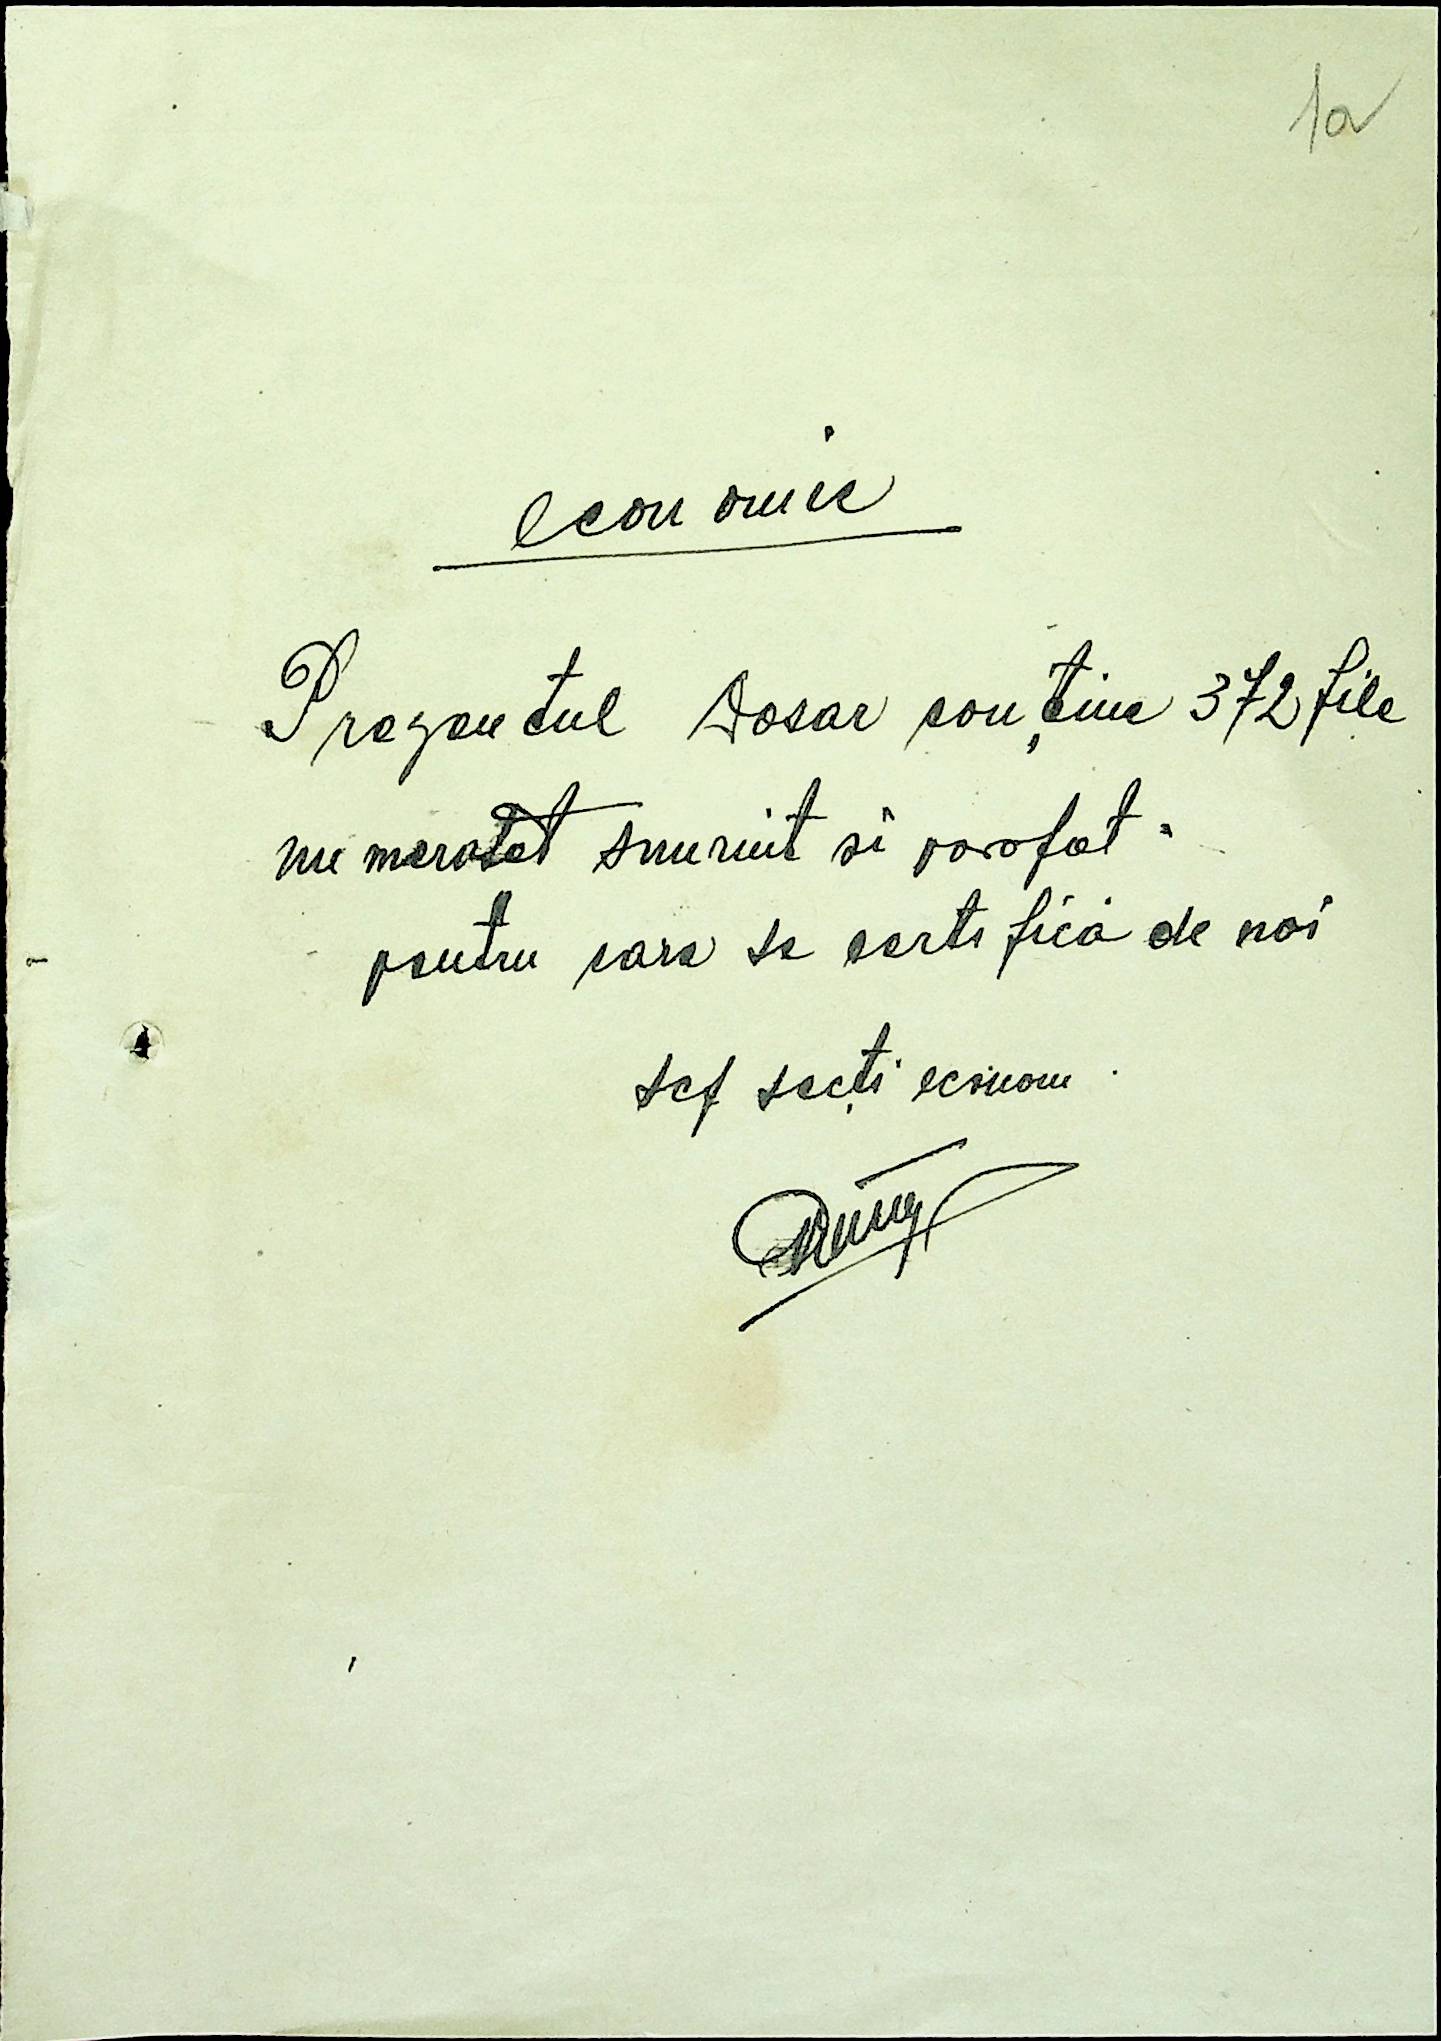 1a
economic
Prezentul Dosar conține 372 file
numerotat snuruit si parafat.
pentru care se certifică de noi
sef secți econom.